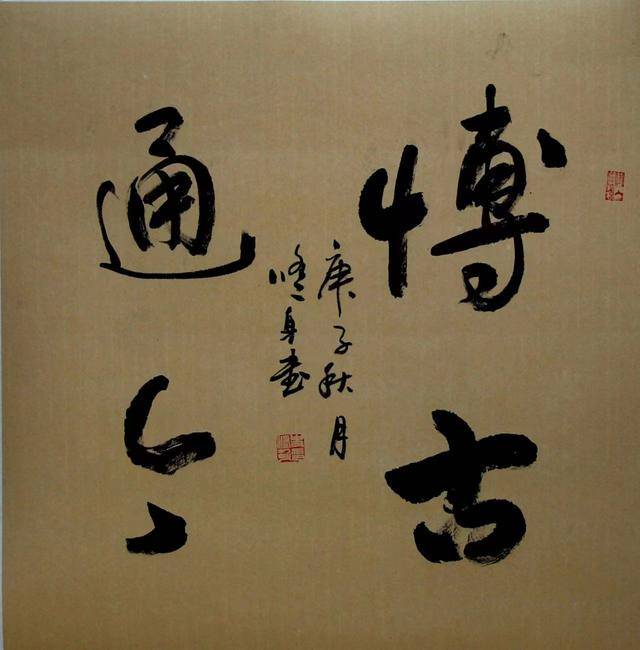 博古
通今
庚子秋月
修身书